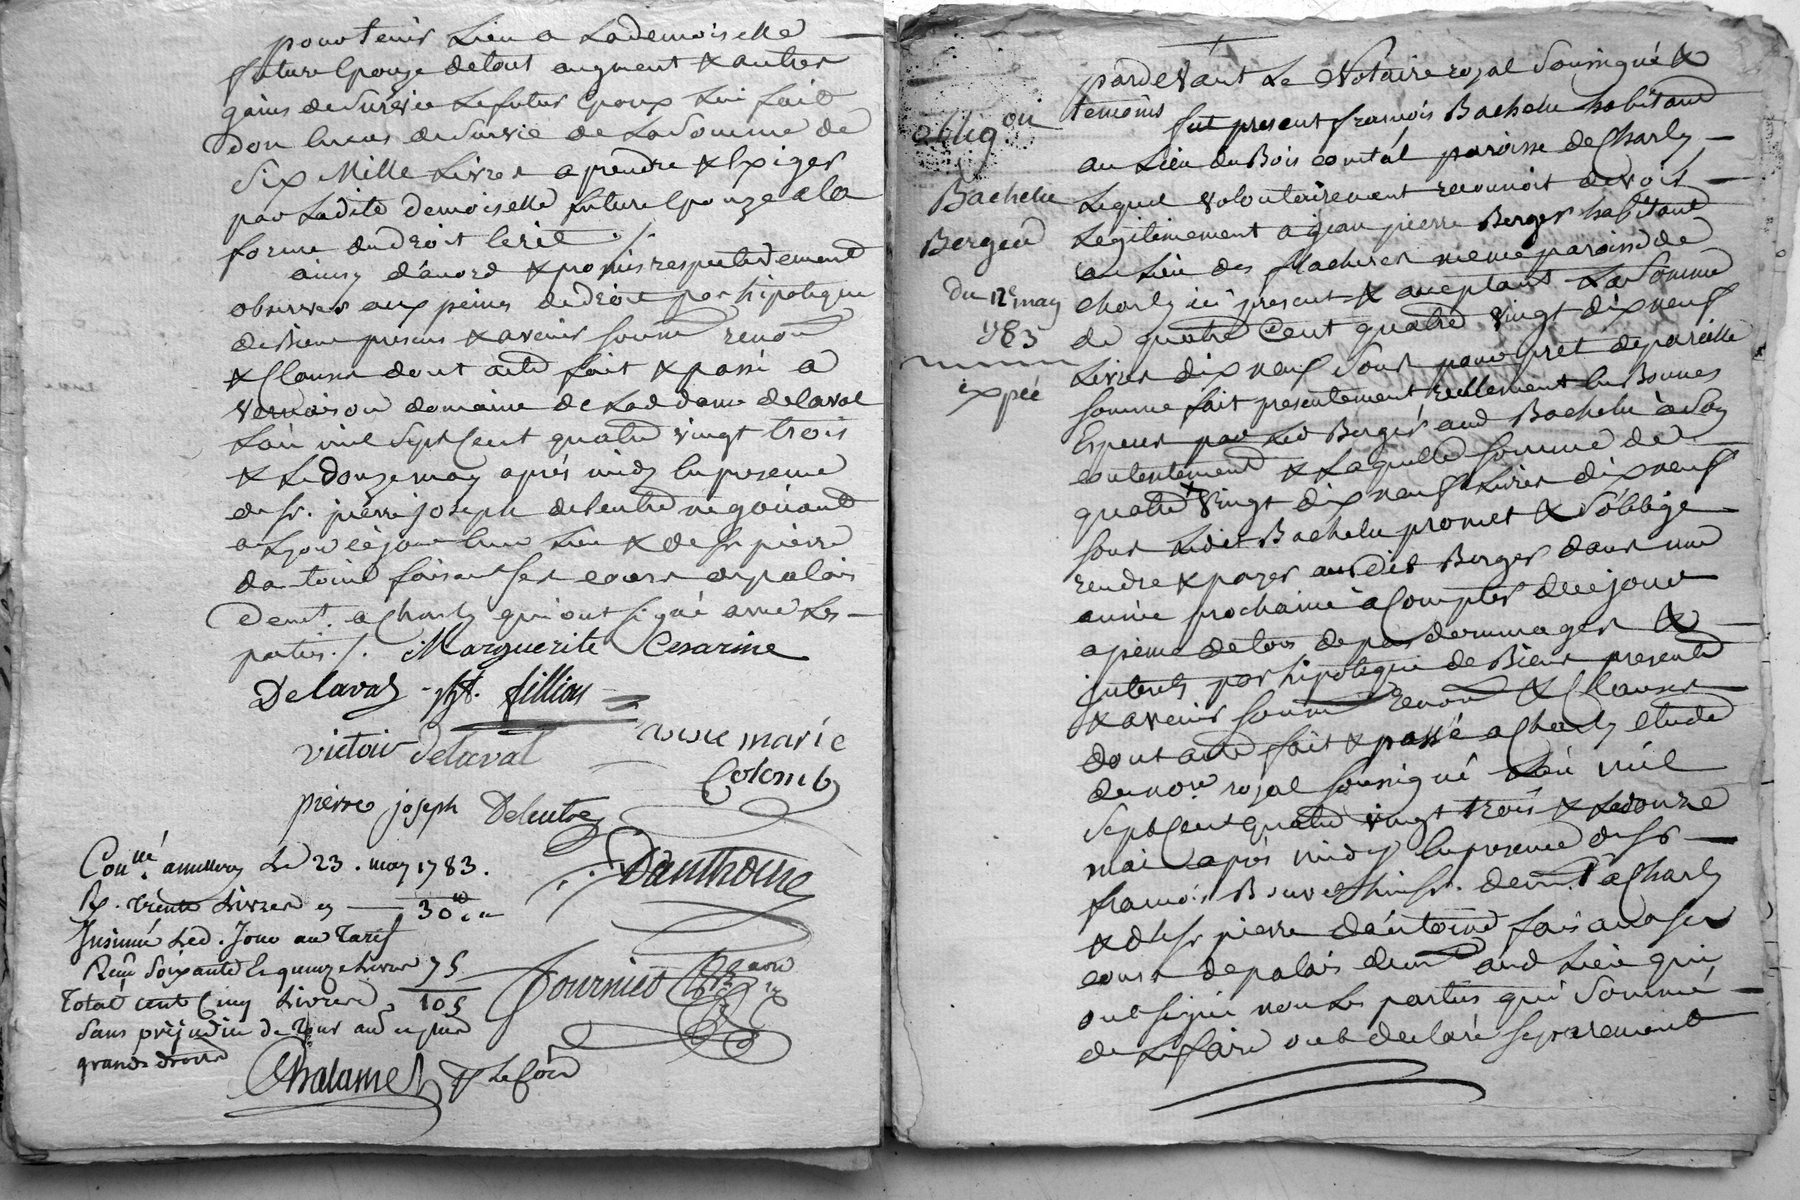 pour tenir Lieu a Lademoiselle
future Epouze de tout augment & autres
gains de Survie Le futur Epoux Lui fait
don En cas de Survie de La Somme de
Six Mille Livres a prendre & Exiger
par Ladite Demoiselle future Epouze a la
forme du droit Ecrit ./.
ainsy d'acord & promis respectivement
observer aux peines de droit par hipoteque
de Biens presens & avenir soumn renon
& Clauses dont acte fait & passé a
vernaison domaine de Lad dame delaval
L'an mil Sept Cent quatre vingt trois
& Le douze may aprés midy En presence
de sr. pierre joseph delentre négotiant
a Lyon
& de sr pierre
dantoine faisant ses cours de palais
demt. a Charly qui ont signé avec Les
parties ./. Marguerite Cesarine
Delaval fillion
victoir delaval anne marie
Colomb
pierre joseph Delentre
Danthoine
Conllé. a millery Le 23. may 1783.
Rx. trente Livres cy 30
Insinué Led. Jour au Tarif
Reçu Soixante Et quinze Livres 75
Total cent Cinq Livres, 105
Sans préjudice de plus
grands droits
Fournier
Chalamel
oblig.on
Bachelu
Berger
Du 12e may
1783
expéé
pardevant Le Notaire royal Soussigné &
temoins
fut present françois Bachelu habitant
au Lieu du Bois comtal paroisse de Charly
Lequel volontairement reconnoit devoir
Legitimement a jean pierre Berger habitant
au Lieu des flacheres meme paroisse de
Charly ici present & acceptant La Somme
de quatre Cent quatre vingt dix neuf
Livres dix neuf Sous pour pret de pareille
somme fait presentement réellement En Bonnes
Especes par Led Berger aud Bachelu à Son
contentement & Laquelle Somme de
quatre vingt dix neuf Livres dix neuf
sous Ledit Bachelu promet & S'oblige
rendre & payer audit Berger dans une
année prochaine à Compter de ce jour
a peine de tous depens dommages &
interets par hipoteque de Biens presents
& avenir soumn renon & Clauses
dont acte fait & passé a Charly etude
du nore royal soussigné L'an mil
Sept Cent quatre vingt trois & Le douze
mai aprés midy En presence de sr
françois Bouvet huissr. demt. a Charly
& de sr pierre dantoine faisant ses
cours de palais demt aud Lieu qui
ont signé non Les parties qui Sommé
de Le faire ont declaré Separement